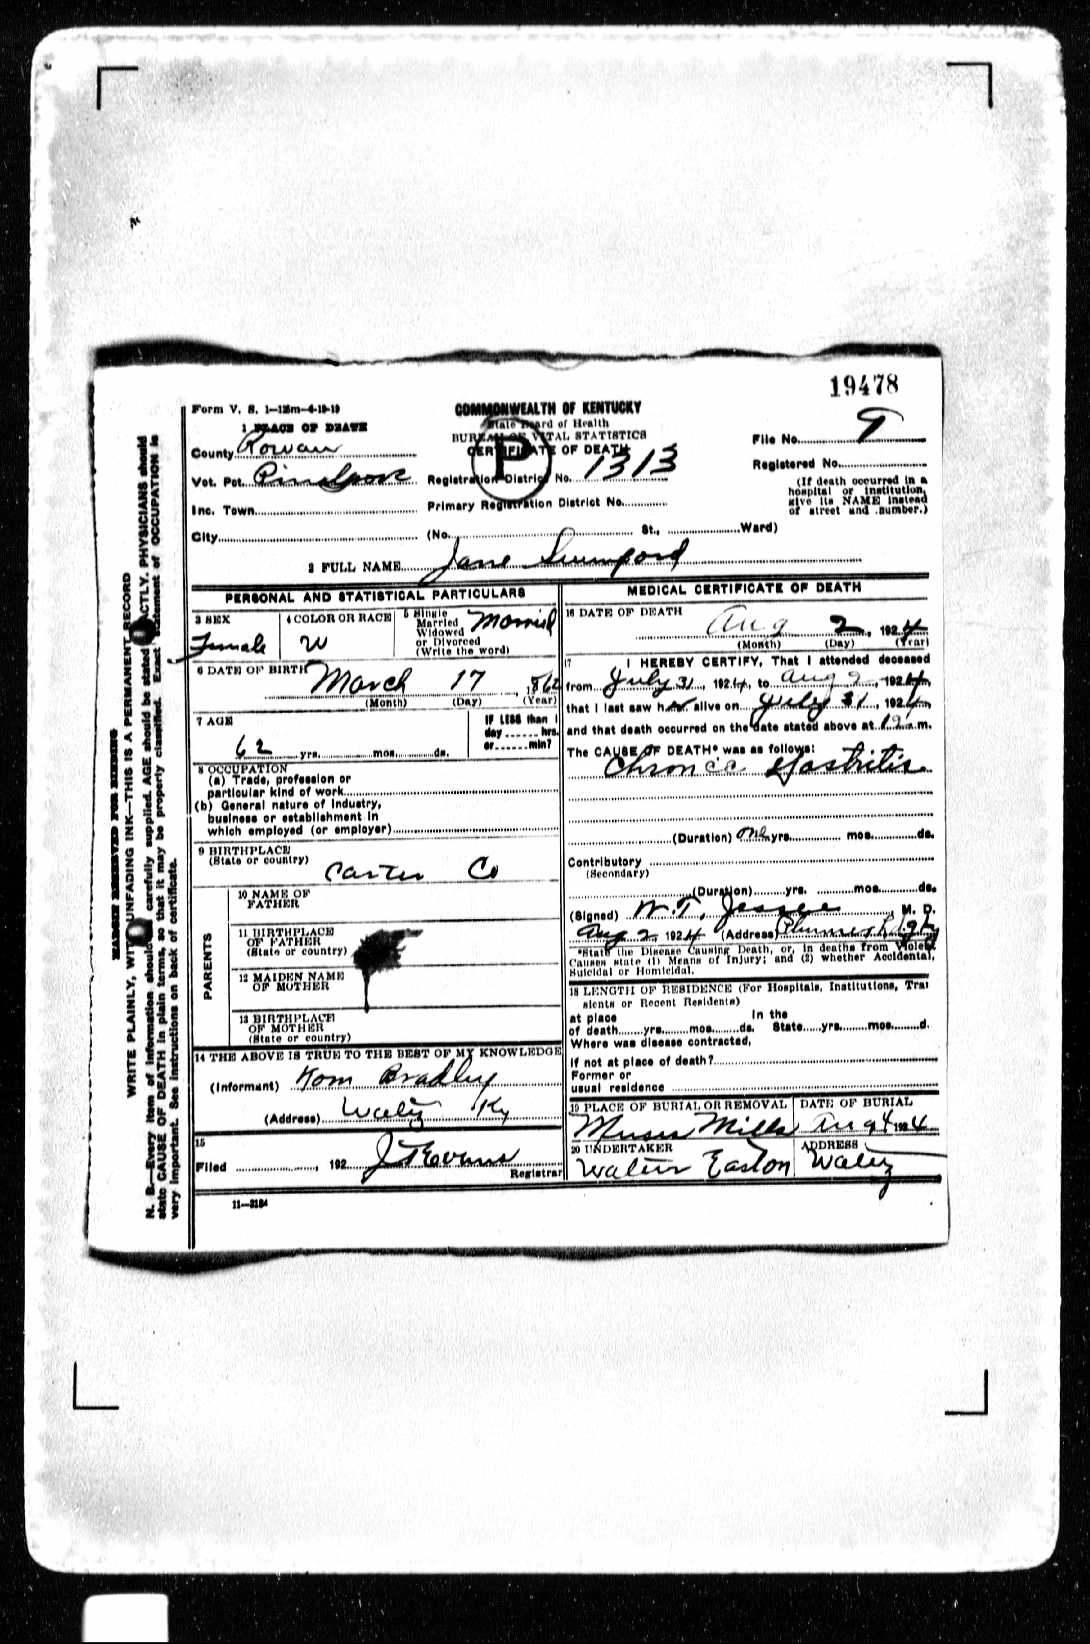 19478
Form V. S. 1-125m-4-19-19
COMMONWEALTH OF KENTUCKY
State Board of Health
BUREAU OF VITAL STATISTICS
CERTIFICATE OF DEATH
P
1 PLACE OF DEATH
County Rowan
Vot. Pct.
Inc. Town
City
Registration District No. 1313
Primary Registration District No.
(No. St., Ward)
File No.
Registered No.
(If death occurred in a
hospital or institution,
give its NAME instead
of street and number.)
2 FULL NAME Jane
PERSONAL AND STATISTICAL PARTICULARS
3 SEX
Female
4 COLOR OR RACE
W
5 Single
Married
Widowed
or Divorced
(Write the word)
Married
6 DATE OF BIRTH
March 17, 1862
(Month) (Day) (Year)
7 AGE
62 yrs. mos. ds.
IF LESS than 1
day hrs.
or min?
8 OCCUPATION
(a) Trade, profession or
particular kind of work
(b) General nature of Industry,
business or establishment in
which employed (or employer)
9 BIRTHPLACE
(State or country)
Carter Co
PARENTS
10 NAME OF
FATHER
11 BIRTHPLACE
OF FATHER
(State or country)
12 MAIDEN NAME
OF MOTHER
13 BIRTHPLACE
OF MOTHER
(State or country)
14 THE ABOVE IS TRUE TO THE BEST OF MY KNOWLEDGE
(Informant) Tom Bradley
(Address) Waltz Ky
15
Filed , 192 J T Evans
Registrar
11-3184
MEDICAL CERTIFICATE OF DEATH
16 DATE OF DEATH
Aug 2, 1924
(Month) (Day) (Year)
17 I HEREBY CERTIFY, That I attended deceased
from July 31, 1924, to Aug 2, 1924,
that I last saw her alive on July 31, 1924,
and that death occurred on the date stated above at 12 m.
The CAUSE OF DEATH* was as follows:
Chronic Gastritis
(Duration) One yrs. mos. ds.
Contributory
(Secondary)
(Duration) yrs. mos. ds.
(Signed) W. T. Jessee M. D.
Aug 2, 1924 (Address)
*State the Disease Causing Death, or, in deaths from Violent
Causes state (1) Means of Injury; and (2) whether Accidental,
Suicidal or Homicidal.
18 LENGTH OF RESIDENCE (For Hospitals, Institutions, Tran
sients or Recent Residents)
at place In the
of death yrs. mos. ds. State yrs. mos. d.
Where was disease contracted,
if not at place of death?
Former or
usual residence
19 PLACE OF BURIAL OR REMOVAL
Muses Mills
DATE OF BURIAL
Aug 4 1924
20 UNDERTAKER
Walter Easton
ADDRESS
Waltz
MARGIN RESERVED FOR BINDING
WRITE PLAINLY, WITH UNFADING INK—THIS IS A PERMANENT RECORD
N. B.—Every item of information should be carefully supplied. AGE should be stated EXACTLY. PHYSICIANS should
state CAUSE OF DEATH in plain terms, so that it may be properly classified. Exact statement of OCCUPATION is
very important. See instructions on back of certificate.